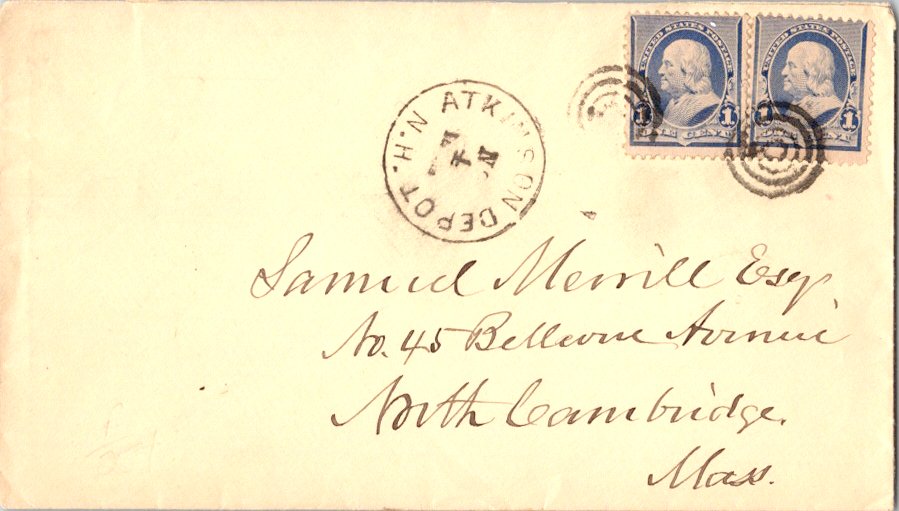 UNITED STATES POSTAGE UNITED STATES POSTAGE
1 ONE CENT 1 1 ONE CENT 1
ATKINSON DEPOT. N.H.
Samuel Merrill Esq
No. 45 Bellevue Avenue
North Cambridge.
Mass.